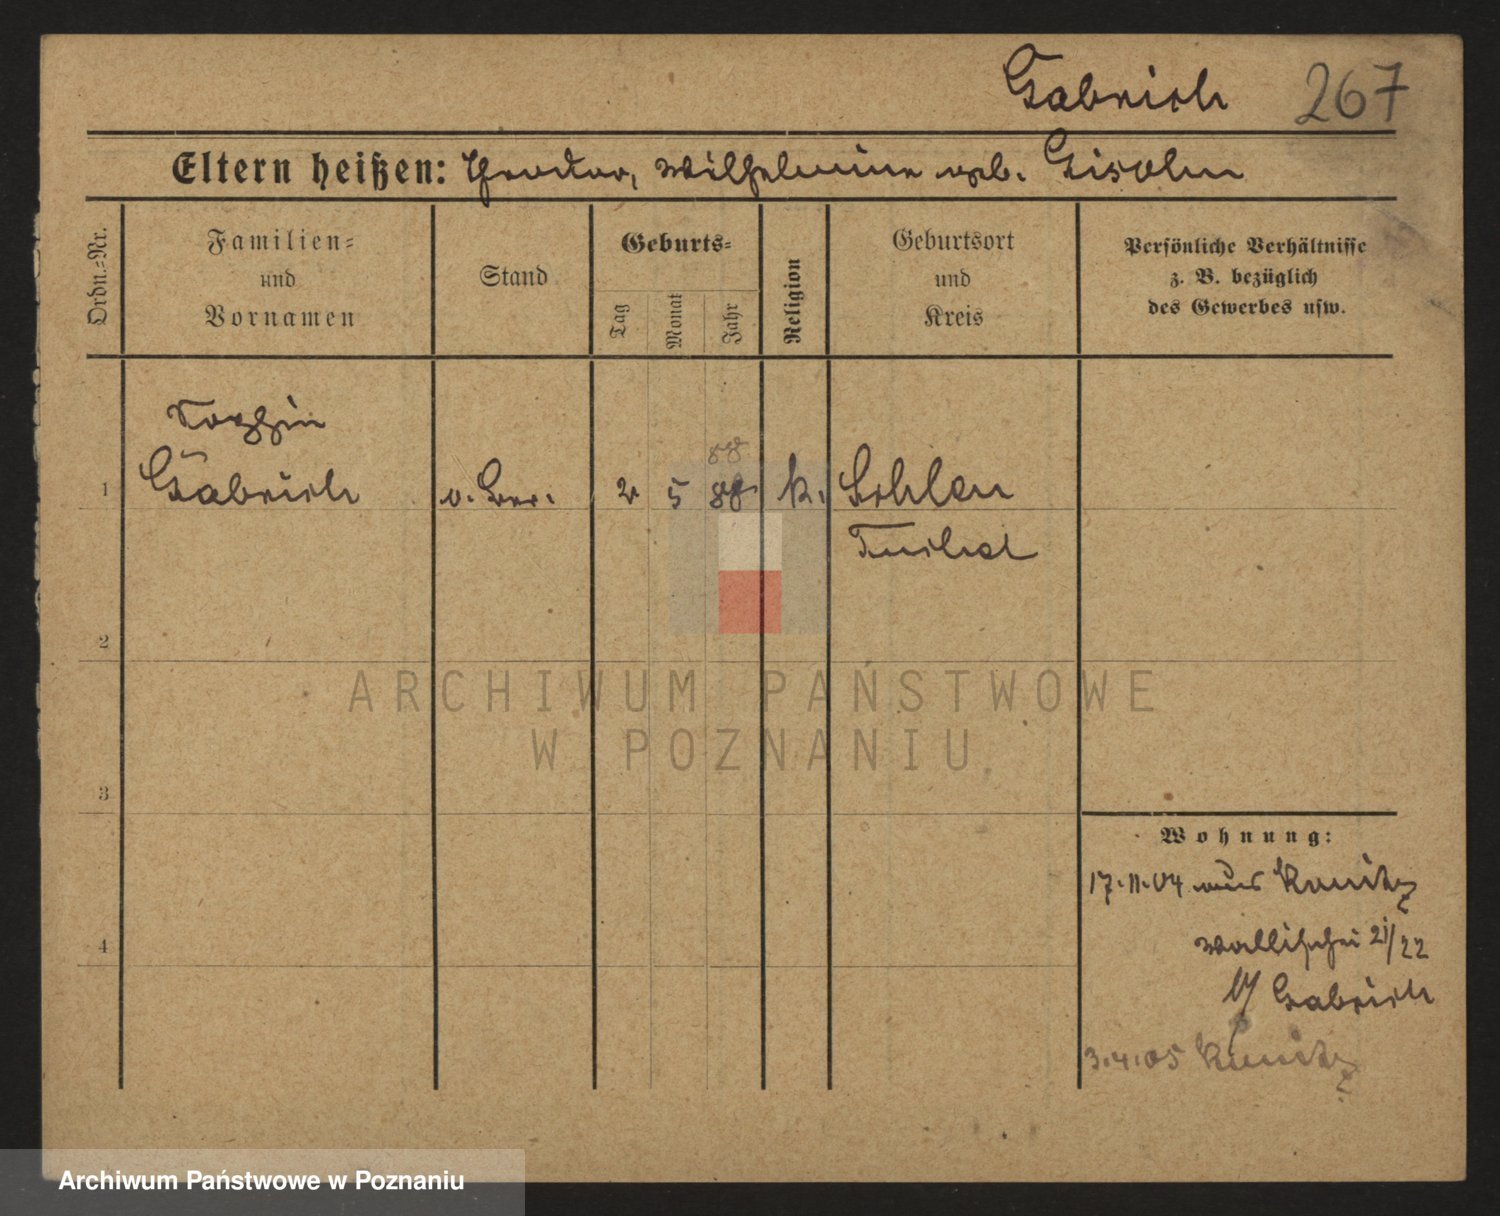 Gabriele 267
Eltern heißen: Theodor, Wilhelmine geb.
Ordn.=Nr.
Familien=
und
Vornamen
Stand
Geburts=
Tag
Monat
Jahr
Religion
Geburtsort
und
Kreis
Persönliche Verhältnisse
z. B. bezüglich
des Gewerbes usw.
88
1 2 5 88 k.
Tuchel
2
3
4
Wohnung:
17.11.04 aus Konitz
Wallischei 21/22
b/
3.4.05 Konitz
ARCHIWUM PAŃSTWOWE
W POZNANIU
Archiwum Państwowe w Poznaniu